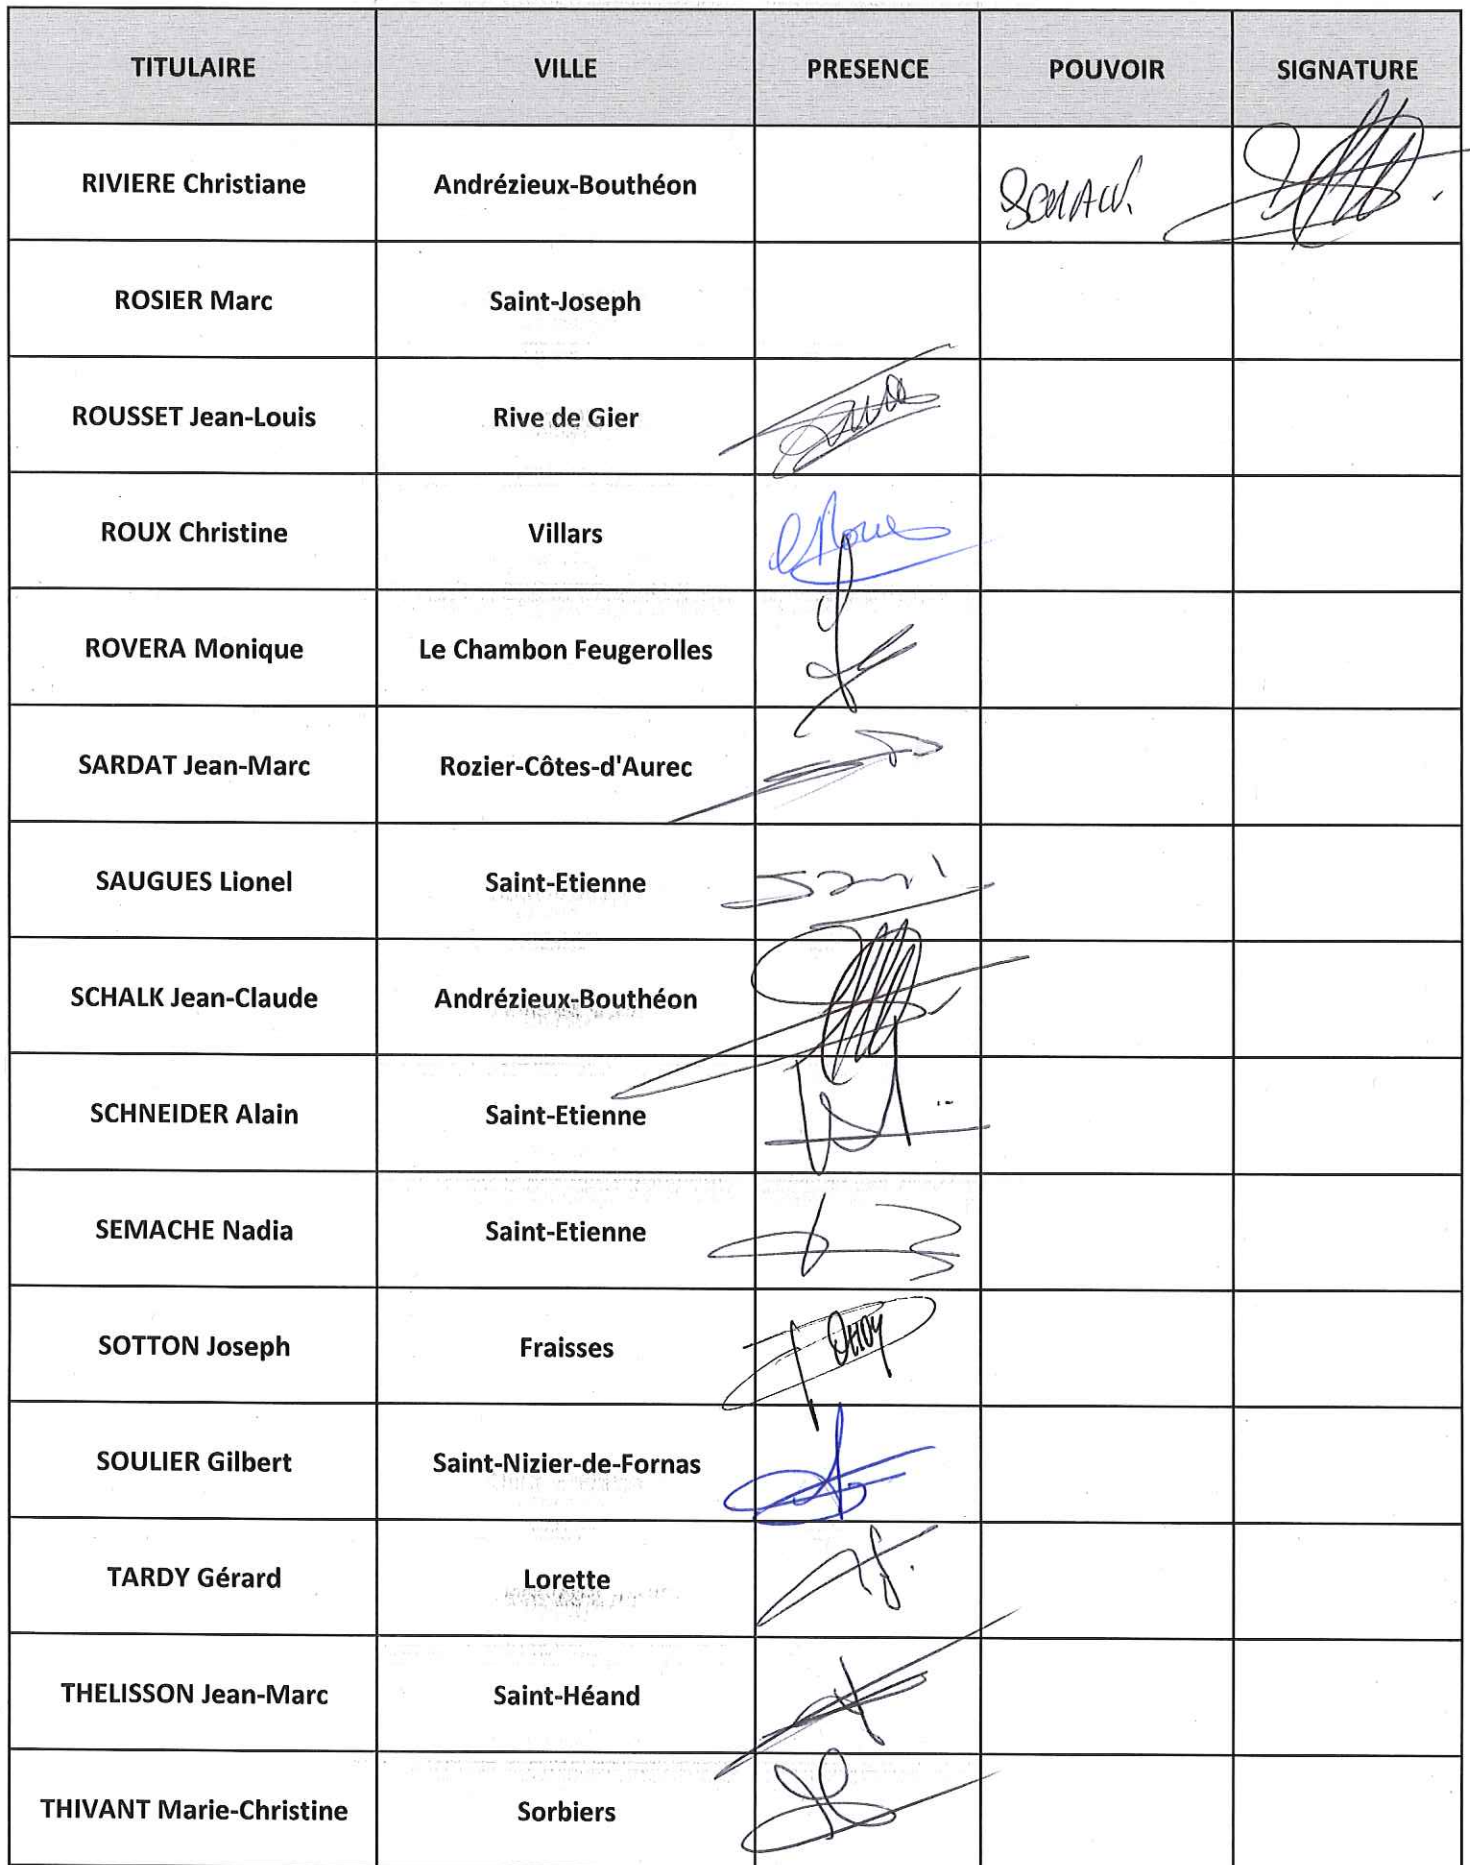 TITULAIRE VILLE PRESENCE POUVOIR SIGNATURE
RIVIERE Christiane Andrézieux-Bouthéon SCHALK
ROSIER Marc Saint-Joseph
ROUSSET Jean-Louis Rive de Gier
ROUX Christine Villars
ROVERA Monique Le Chambon Feugerolles
SARDAT Jean-Marc Rozier-Côtes-d'Aurec
SAUGUES Lionel Saint-Etienne
SCHALK Jean-Claude Andrézieux-Bouthéon
SCHNEIDER Alain Saint-Etienne
SEMACHE Nadia Saint-Etienne
SOTTON Joseph Fraisses
SOULIER Gilbert Saint-Nizier-de-Fornas
TARDY Gérard Lorette
THELISSON Jean-Marc Saint-Héand
THIVANT Marie-Christine Sorbiers